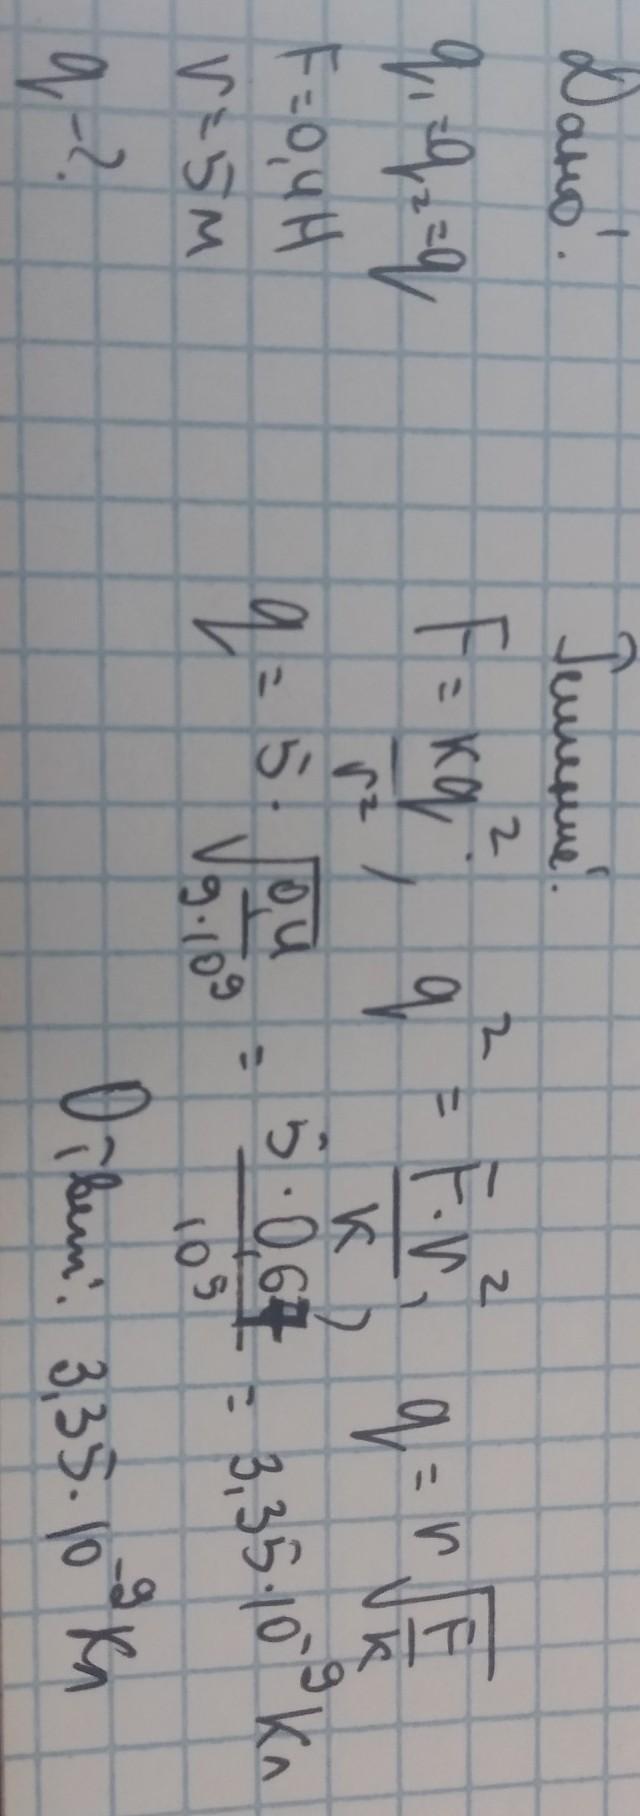 Дано:
q₁=q₂=q
F=0,4 Н
r=5 м
q-?
Решение:
F = kq²/r², q² = F·r²/k, q = r√(F/k)
q = 5·√(0,4/9·10⁹) = 5·0,67/10⁵ = 3,35·10⁻⁹ Кл
Ответ: 3,35·10⁻⁹ Кл